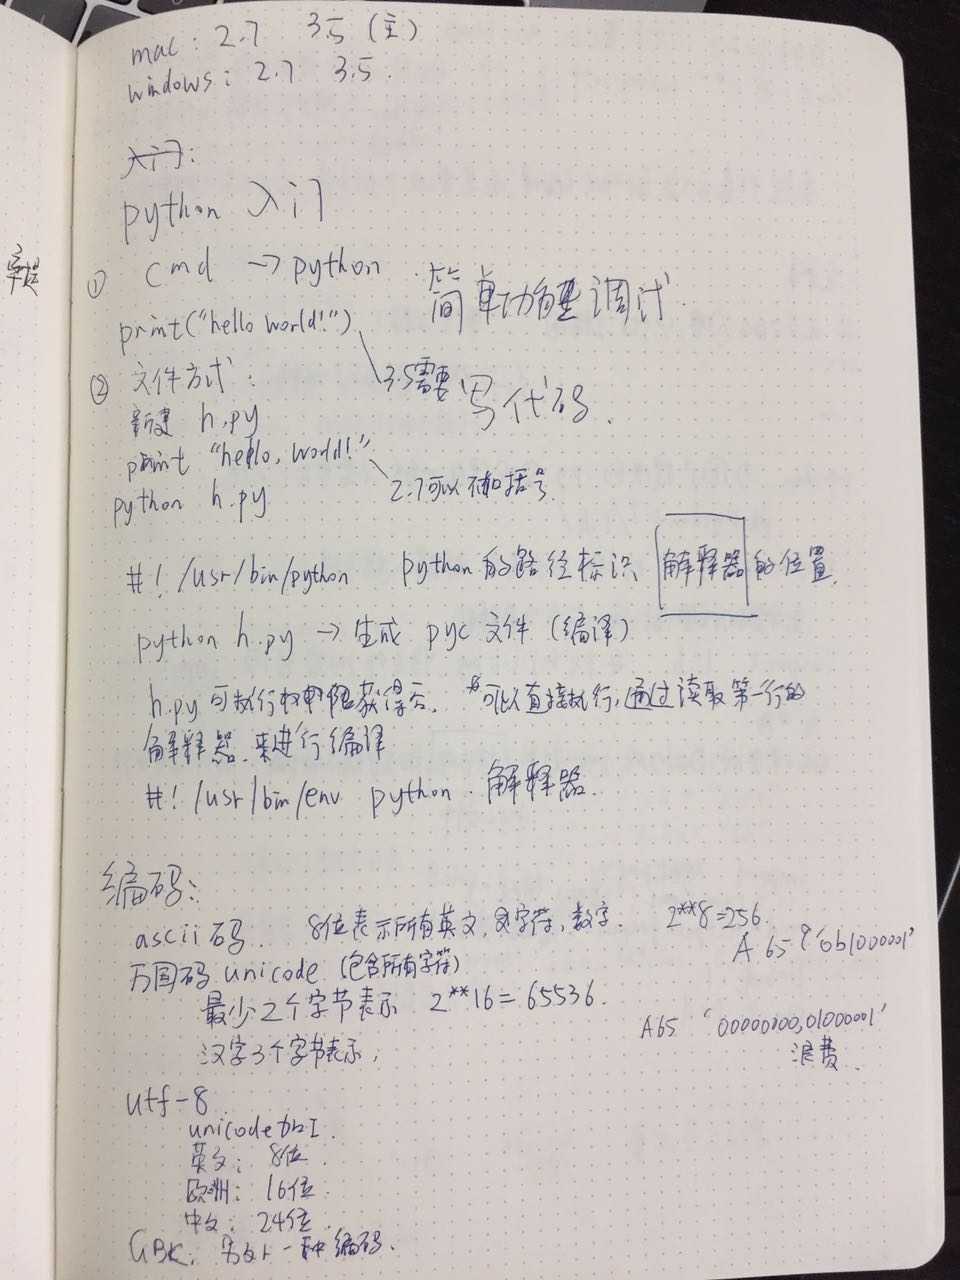 mac: 2.7 3.5 (主)
windows: 2.7 3.5.
入门:
python 入门
① cmd → python 简单功能调试.
print("hello world!")
② 文件方式: 3.5需要 写代码.
新建 h.py
print "hello, world!"
python h.py 2.7可以不加括号.
#! /usr/bin/python python的路径标识 解释器的位置.
python h.py → 生成 pyc 文件 (编译)
h.py 可执行权限获得后. 可以直接执行,通过读取第一行的
解释器.来进行编译
#! /usr/bin/env python. 解释器.
编码:
ascii码. 8位表示所有英文, 字符, 数字. 2**8=256.
A 65 '0b1000001'
万国码 unicode (包含所有字符)
最少2个字节表示 2**16=65536.
A65 '00000000,01000001'
汉字3个字节表示, 浪费.
utf-8
unicode加工.
英文: 8位.
欧洲: 16位.
中文: 24位.
GBK: 一种编码.
字段